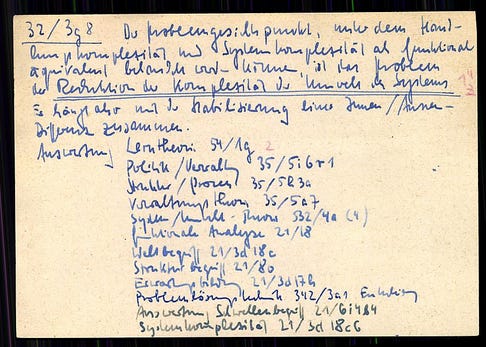 32/3g8 Der Problemgesichtspunkt, unter dem Hand-
lungskomplexität und Systemkomplexität als funktional
äquivalent behandelt werden können, ist das Problem
der Reduktion der Komplexität der Umwelt des Systems.
Es hängt also mit der Stabilisierung einer Innen/Aussen-
Differenz zusammen.
Auswertung Lerntheorie 54/1g 2
Politik/Verwaltung 35/5i6r1
Struktur/Prozess 35/583a
Verwaltungstheorie 35/5a7
System/Umwelt-Theorie 532/4a (4)
funktionale Analyse 21/18
Weltbegriff 21/3d18c
Strukturbegriff 21/8o
Erwartungsbildung 21/3d17h
Problemlösungstechnik 342/3a1
Auswertung Schwellenbegriff 21/6i484
Systemkomplexität 21/3d18c6